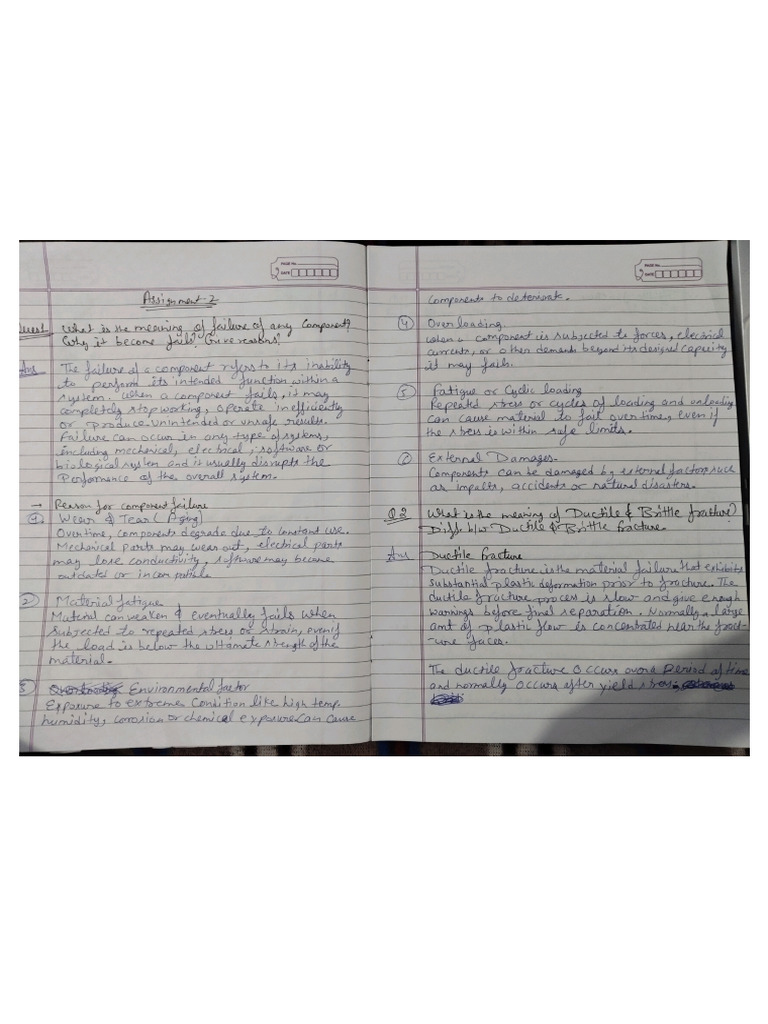 PAGE No.
DATE
Assignment 2
Quest What is the meaning of failure of any Component?
Why it become fails? Give reasons?
Ans The failure of a component refers to its inability
to perform its intended function within a
system. When a component fails, it may
completely stop working, operate inefficiently
or produce unintended or unsafe results.
Failure can occur in any type of systems,
including mechanical, electrical, software or
biological system and it usually disrupts the
Performance of the overall system.
→ Reason for component failure
1. Wear & Tear (Aging)
Overtime, components degrade due to constant use.
Mechanical parts may wear out, electrical parts
may lose conductivity, software may become
outdated or incompatible
2) Material fatigue
Material can weaken & eventually fails when
subjected to repeated stress or strain, even if
the load is below the ultimate strength of the
material.
3 Environmental factor
Exposure to extremes Condition like high temp.
humidity, corosion or chemical exposure can cause
PAGE No.
DATE
Components to deteriorate.
4) Over loading.
When a component is subjected to forces, electrical
currents, or other demands beyond its designed capacity
it may fail.
5 Fatigue or Cyclic loading
Repeated stress or cycles of loading and unloading
can cause material to fail over time, even if
the stress is within safe limits.
6 External Damages-
Components can be damaged by external factors such
as impacts, accidents or natural disasters.
Q2 What is the meaning of Ductile & Brittle fracture?
Diff. b/w Ductile & Brittle fracture.
Ans Ductile fracture
Ductile fracture is the material failure that exhibits
substantial plastic deformation prior to fracture. The
ductile fracture process is slow and give enough
warnings before final separation. Normally, a large
amt of plastic flow is concentrated near the fract-
-ure faces.
The ductile fracture occurs over a period of time
and normally occurs after yield stress